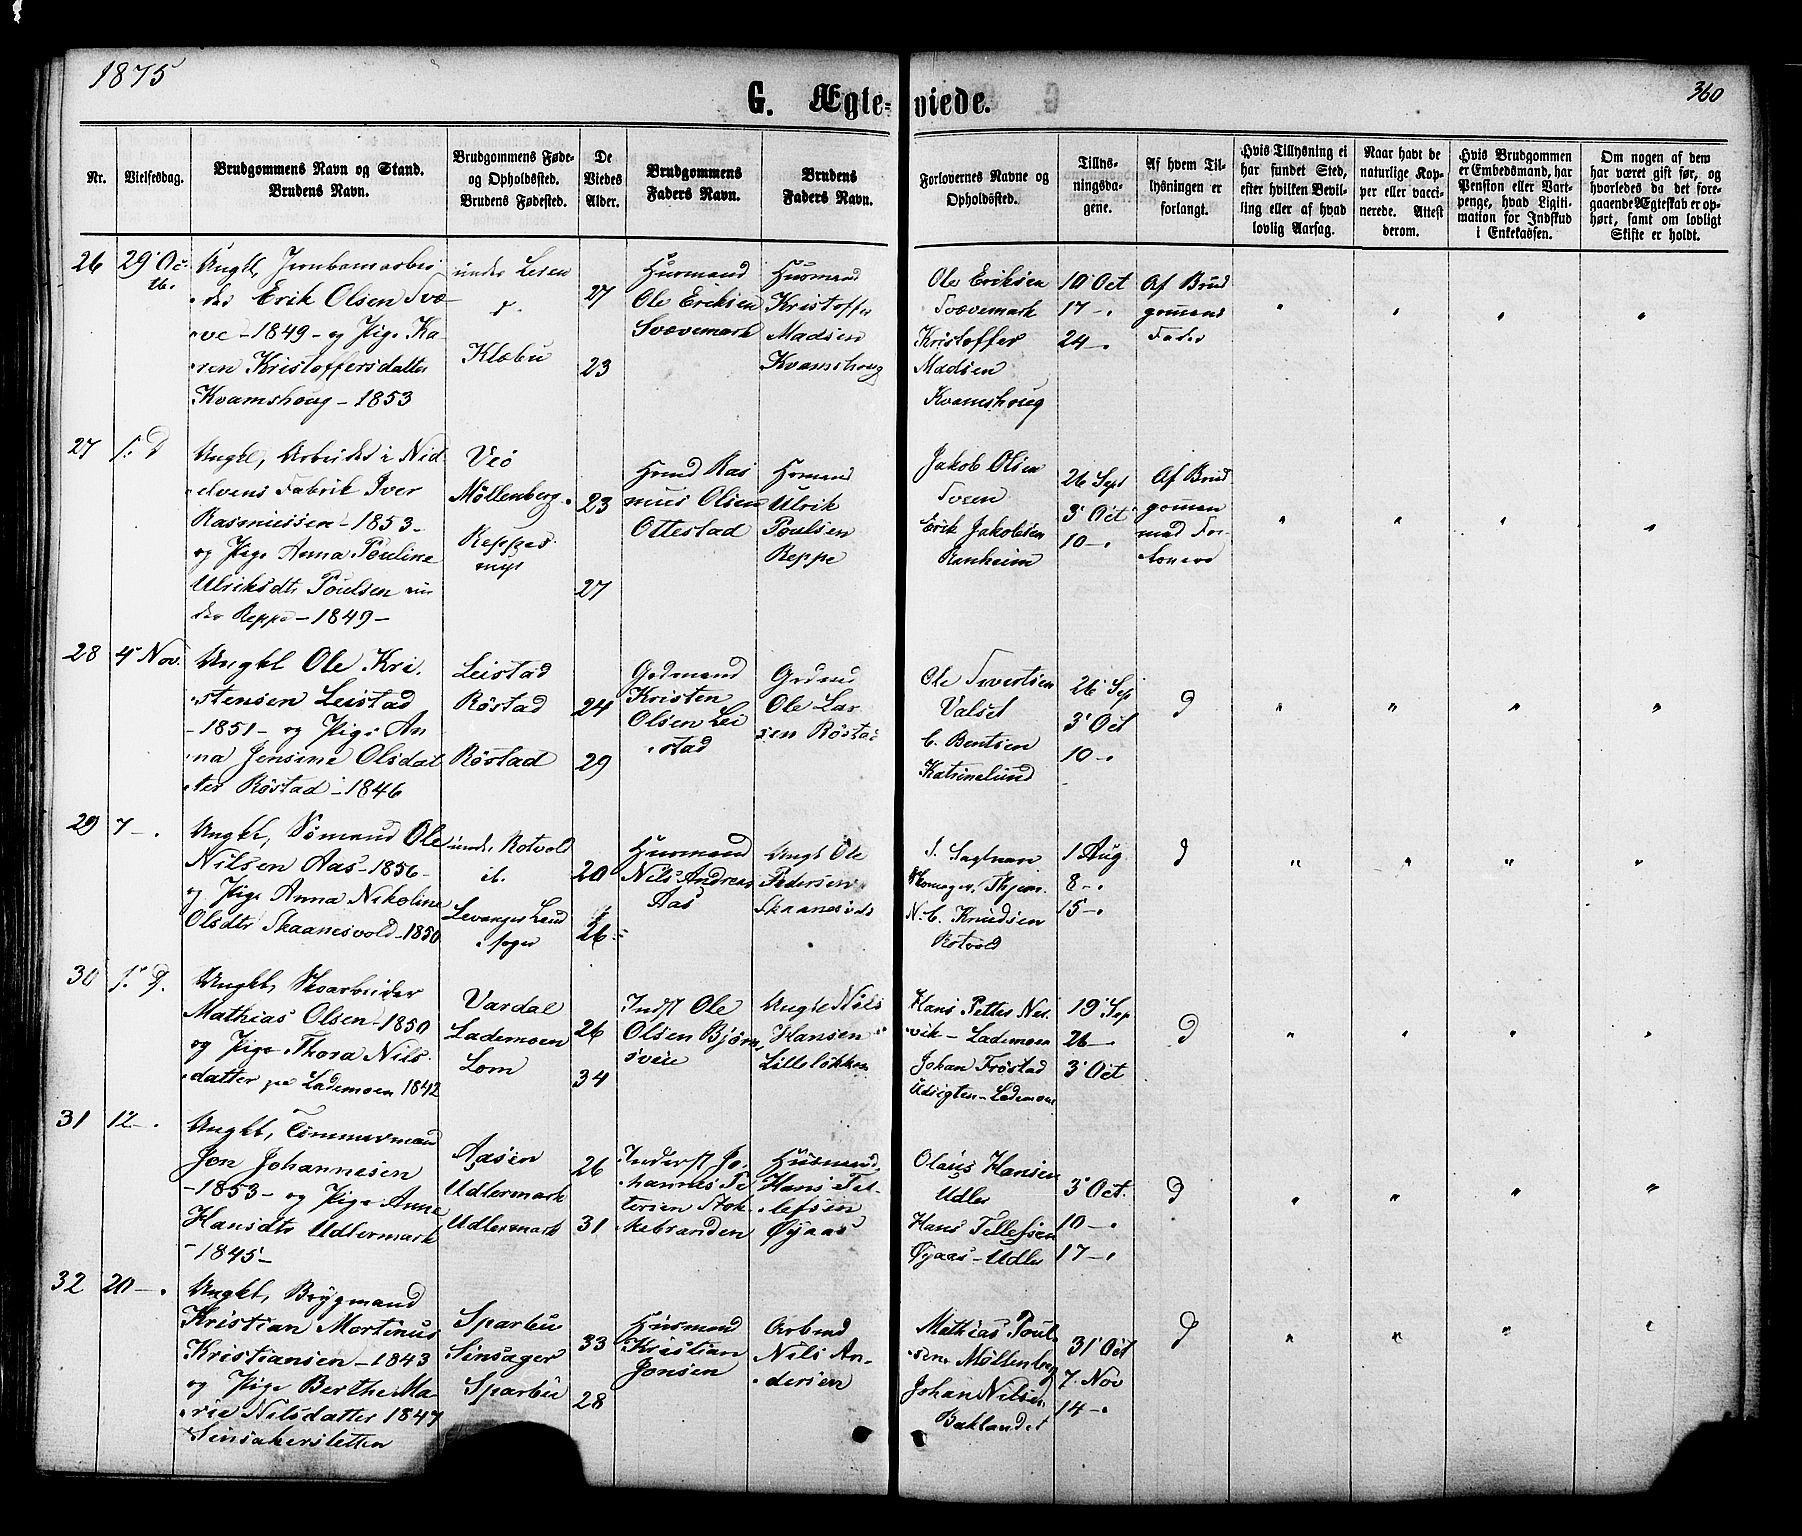 1875
360
G. Ægte=viede.
Nr.
Vielsesdag.
Brudgommens Navn og Stand.
Brudens Navn.
Brudgommens Føde-
og Opholdssted.
Brudens Fødested.
De
Viedes
Alder.
Brudgommens
Faders Navn.
Brudens
Faders Navn.
Forlovernes Navne og
Opholdssted.
Tillys-
ningsda-
gene.
Af hvem Til-
lysningen er
forlangt.
Hvis Tillysning ei
har fundet Sted,
efter hvilken Bevil-
ling eller af hvad
lovlig Aarsag.
Naar havt de
naturlige Kop-
per eller vacci-
nerede. Attest
derom.
Hvis Brudgommen
er Embedsmand, har
Pension eller Vart-
penge, hvad Ligiti-
mation for Indskud
i Enkekassen.
Om nogen af dem
har været gift før, og
hvorledes da det fore-
gaaende Ægteskab er op-
hørt, samt om lovligt
Skifte er holdt.
26
29' Oc-
tb.
Ungkl, Jernbanearbei
der Erik Olsen Svæ-
ve - 1849 - og Pige Ka
ren Kristoffersdatter
Kvamshoug - 1853
under Leren
Klæbu
27
23
Husmand
Ole Eriksen
Svævemark
Husmand
Kristoffer
Madsen
Kvamshoug
Ole Eriksen
Svævemark
Kristoffer
Madsen
Kvamshoug
10 Oct
17 -.
24 -.
Af Brud
gomens
Fader
27
s. D
Ungkl, Arbeider i Nid
elvens Fabrik Iver
Rasmussen - 1853 -
og Pige Anna Pouline
Ulriksdt, Poulsen un
der Reppe - 1849 -
Veø
Møllenberg.
Reppes
myr
23
27
Hsmd Ras
mus Olsen
Ottestad
Hsmand
Ulrik
Poulsen
Reppe
Jakob Olsen
Erik Jakobsen
Ranheim
26 Sept
3' Oct
10 -.
Af Brud
gomen
med For
lovere
28
4' Nov.
Ungkl Ole Kri
stensen Leistad
- 1851 - og Pige An
na Jensine Olsdat
ter Røstad - 1846
Leistad
Røstad
Røstad
24
29
Grdmand
Kristen
Olsen Lei
stad
Grdmd
Ole Lar
sen Røstad
Ole Sivertsen
Valset
C. Bentsen
Katrinelund
26' Sep
3' Oct
10 -.
D
29
7 -.
Ungkl, Sømand Ole
Nilsen Aas - 1856 -
og Pige Anna Nikoline
Olsdtr Skaanesvold - 1850
under Rotvold
it.
Levanger Land
sogn
20
26
Husmand
Nils Andreas
Aas
Ungk Ole
Pedersen
Skaanesvold
N. C. Knudsen
Rotvold
1 Aug
8 -.
15 -.
D
30
s. D.
Ungkl, Skoarbeider
Mathias Olsen - 1850
og Pige Thora Nils
datter paa Lademoen 1842
Vardal
Lademoen
Lom
26
34
Indst Ole
Olsen Bjørn
sveie
Ungke Nils
Hansen
Lilleløkken
Hans Petter Nes
vik - Lademoen
Johan Frøstad
Udsigten - Lademoen
19' Sep
26 -.
3' Oct
D
31
12 -.
Ungkl, Tømmermand
Jon Johannesen
- 1853 - og Pige Anne
Hansdtr Udlermark
- 1845 -
Aasen
Udlermark
Udlermark
26
31
Inderst Jo
hannes Pe
tersen Stok
kebranden
Husmand
Hans Tel
lefsen
Øyaas
Olaus Hansen
Udler
Hans Tellefsen
Øyaas - Udler
3' Oct.
10 -.
17 -.
D
32
20 -.
Ungkl, Brygmand
Kristian Martinus
Kristiansen - 1843
og Pige Berthe Ma-
rie Nilsdatter 1847
Sinsakersletten
Sparbu
Sinsager
Sparbu
33
28
Husmand
Kristian
Jonsen
Arbmd
Nils An-
dersen
Mathias Poul
sen Møllenberg
Johan Nilsen
Baklandet
31' Oct
7. Nov
14 -.
D